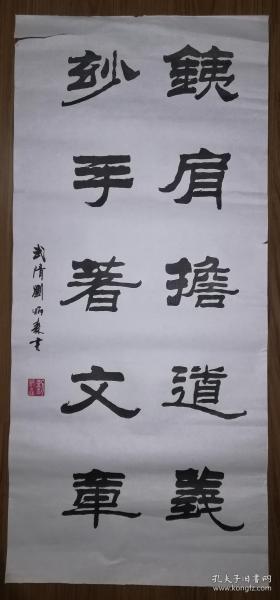 銕肩擔道義
玅手著文章
武清劉炳森書
孔夫子旧书网
www.kongfz.com